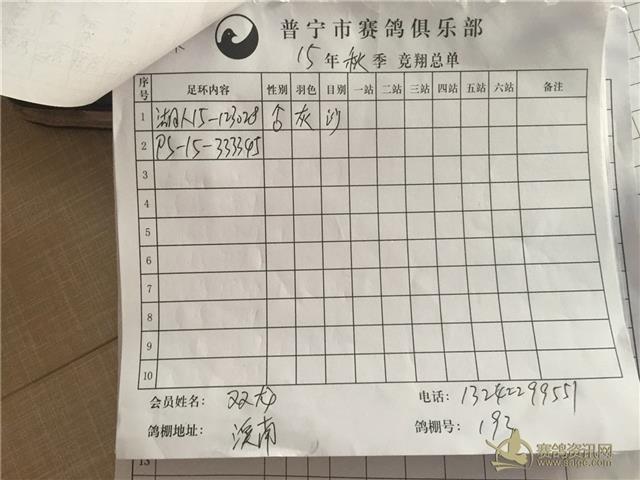 普宁市赛鸽俱乐部
15年秋季 竞翔总单
序号 足环内容 性别 羽色 目别 一站 二站 三站 四站 五站 六站 备注
1 湖人15-123028 灰 沙
2 PS-15-333345
3
4
5
6
7
8
9
10
会员姓名: 双龙 电话: 13242299551
鸽棚地址: 溪南 鸽棚号: 192
13
赛鸽资讯网
www.saige.com